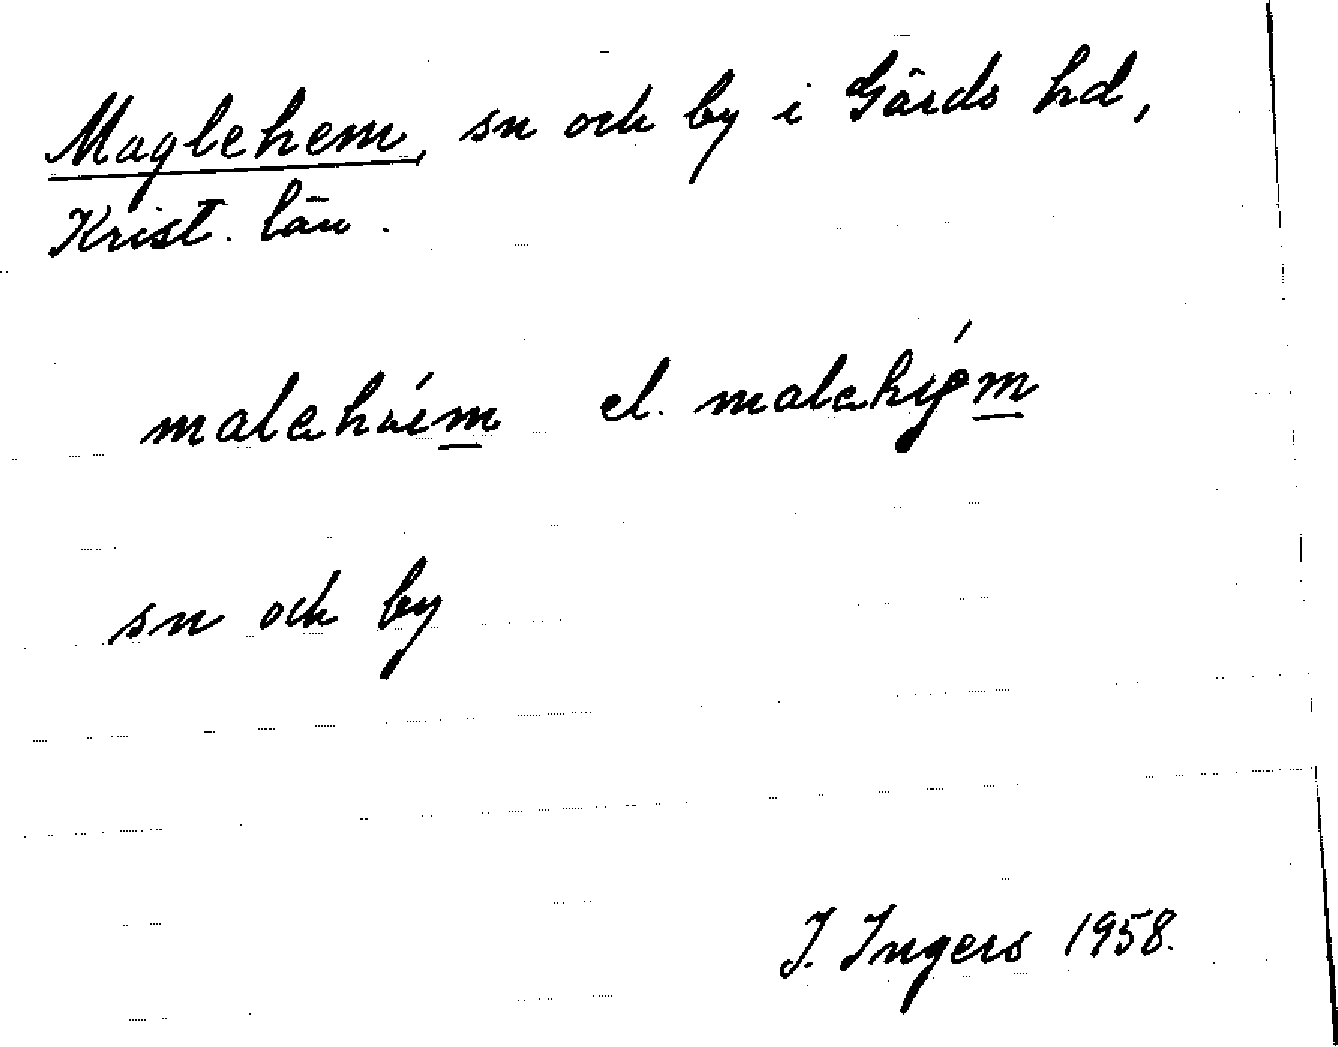 Maglehem, sn och by i Gärds hd,
Krist. län.
el.
sn och by
I. Ingers 1958.